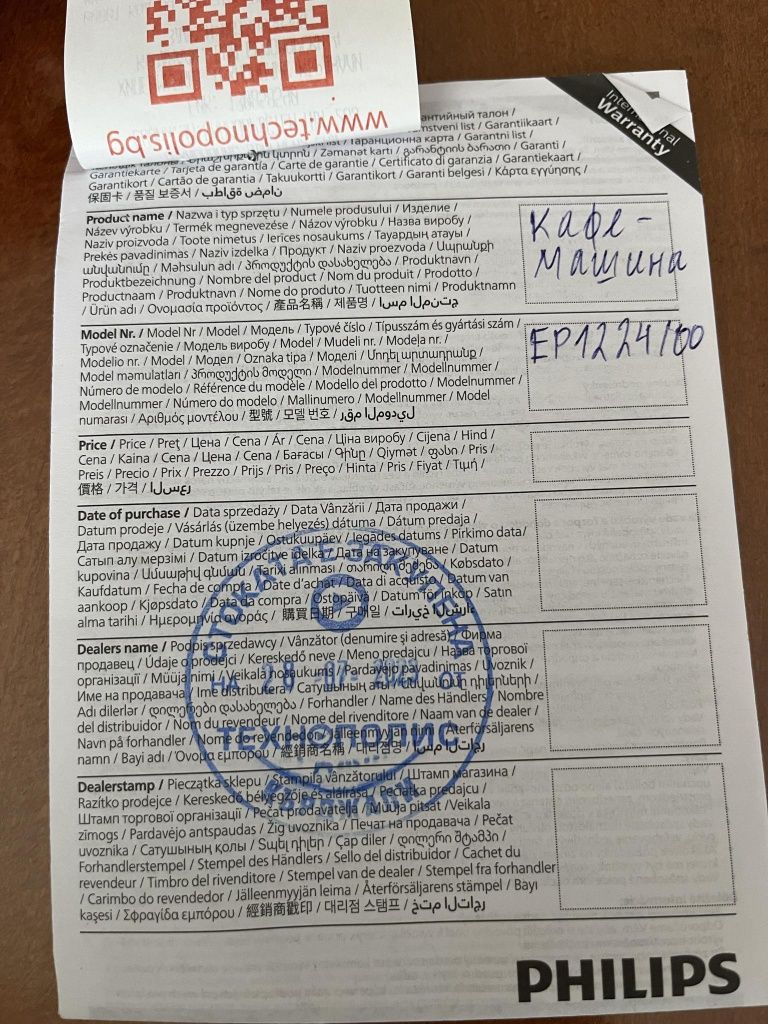 www.technopolis.bg
International
Warranty
Garantiekarte / Tarjeta de garantía / Carte de garantie / Certificato di garanzia / Garantiekaart /
Garantikort / Cartão de garantia / Takuukortti / Garantikort / Garanti belgesi / Κάρτα εγγύησης /
保固卡 / 품질 보증서 / بطاقة ضمان
Product name / Nazwa i typ sprzętu / Numele produsului / Изделие /
Název výrobku / Termék megnevezése / Názov výrobku / Назва виробу /
Naziv proizvoda / Toote nimetus / Ierīces nosaukums / Тауардың атауы /
Prekės pavadinimas / Naziv izdelka / Продукт / Naziv proezvoda / Ապրանքի
անվանումը / Məhsulun adı / პროდუქტის დასახელება / Produktnavn /
Produktbezeichnung / Nombre del producto / Nom du produit / Prodotto /
Productnaam / Produktnavn / Nome do produto / Tuotteen nimi / Produktnamn
/ Ürün adı / Ονομασία προϊόντος / 產品名稱 / 제품명 / اسم المنتج
Кафе-
машина
Model Nr. / Model Nr / Model / Модель / Typové číslo / Típusszám és gyártási szám /
Typové označenie / Модель виробу / Model / Mudeli nr. / Modeļa nr. /
Modelio nr. / Model / Модел / Oznaka tipa / Моделі / Մոդել արտադրանք /
Model mamulatları / პროდუქტის მოდელი / Modelnummer / Modellnummer /
Número de modelo / Référence du modèle / Modello del prodotto / Modelnummer /
Modellnummer / Número do modelo / Mallinumero / Modellnummer / Model
numarası / Αριθμός μοντέλου / 型號 / 모델 번호 / رقم الموديل
EP1224/00
Price / Price / Preţ / Цена / Cena / Ár / Cena / Ціна виробу / Cijena / Hind /
Cena / Kaina / Cena / Цена / Cena / Бағасы / Գինը / Qiymət / ფასი / Pris /
Preis / Precio / Prix / Prezzo / Prijs / Pris / Preço / Hinta / Pris / Fiyat / Τιμή /
價格 / 가격 / السعر
Date of purchase / Data sprzedaży / Data Vânzării / Дата продажи /
Datum prodeje / Vásárlás (üzembe helyezés) dátuma / Dátum predaja /
Дата продажу / Datum kupnje / Ostukuupäev / Iegādes datums / Pirkimo data/
Сатып алу мерзімі / Datum izročitve idelka / Дата на закупуване / Datum
kupovina / Ամսաթիվ գնման / Tarixi alınması / თარიღი შეძენა / Købsdato /
Kaufdatum / Fecha de compra / Date d'achat / Data di acquisto / Datum van
aankoop / Kjøpsdato / Data da compra / Ostopäivä / Datum för inköp / Satın
alma tarihi / Ημερομηνία αγοράς / 購買日期 / 구매일 / تاريخ الشراء
Dealers name / Podpis sprzedawcy / Vânzător (denumire şi adresă) / Фирма
продавец / Údaje o prodejci / Kereskedő neve / Meno predajcu / Назва торгової
організації / Müüja nimi / Veikala nosaukums / Pardavėjo pavadinimas / Uvoznik /
Име на продавача / Ime distributera / Сатушының аты /
Adı dilerlər / დილერები დასახელება / Forhandler / Name des Händlers / Nombre
del distribuidor / Nom du revendeur / Nome del rivenditore / Naam van de dealer /
Navn på forhandler / Nome do revendedor / Jälleenmyyjän nimi / Återförsäljarens
namn / Bayi adı / Όνομα εμπόρου / 經銷商名稱 / 대리점명 / اسم التاجر
СТОКАТА Е ЗАКУПЕНА
НА 28 -07- 2023 ОТ
ТЕХНОПОЛИС
Dealerstamp / Pieczątka sklepu / Stampila vânzătorului / Штамп магазина /
Razítko prodejce / Kereskedő bélyegzője és aláírása / Pečiatka predajcu /
Штамп торгової організації / Pečat prodavatelja / Müüja pitsat /Veikala
zīmogs / Pardavėjo antspaudas / Žig uvoznika / Печат на продавача / Pečat
uvoznika / Сатушының қолы / Տպել դիլեր / Çap diler / დილერი შტამპი /
Forhandlerstempel / Stempel des Händlers / Sello del distribuidor / Cachet du
revendeur / Timbro del rivenditore / Stempel van dealer / Stempel fra forhandler
/ Carimbo do revendedor / Jälleenmyyjän leima / Återförsäljarens stämpel / Bayi
kaşesi / Σφραγίδα εμπόρου / 經銷商戳印 / 대리점 스탬프 / ختم التاجر
PHILIPS